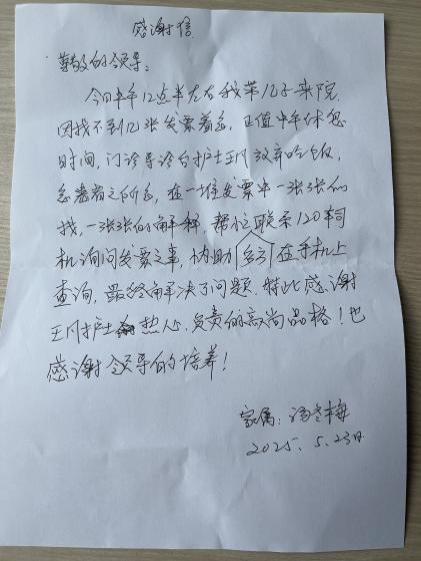 感谢信
尊敬的领导：
今日中午12点半左右我带儿子来院，
因找不到几张发票着急，正值中午休息
时间，门诊导诊台护士王凡放弃吃饭，
急患者之所急，在一堆发票中一张张的
找，一张张的解释，帮忙联系120车司
机询问发票之事，协助多方在手机上
查询，最终解决了问题。特此感谢
王凡护士热心、负责的高尚品格！也
感谢领导的培养！
家属：冯冬梅
2025.5.23日